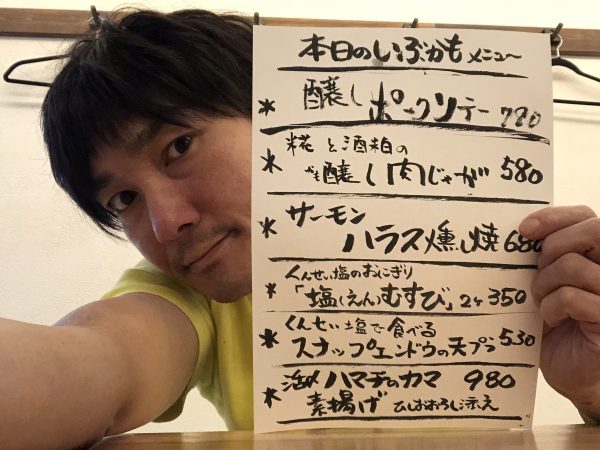 本日のいぶかもメニュー
* 醸し
ポークソテー 780
* 糀と酒粕の
醸し肉じゃが 580
* サーモン
ハラス燻し焼 680
* くんせい塩のおにぎり
「塩(えん)むすび」2ヶ 350
* くんせい塩で食べる
スナップエンドウの天プラ 530
* 活〆ハマチのカマ 980
素揚げ ひしおおろし添え